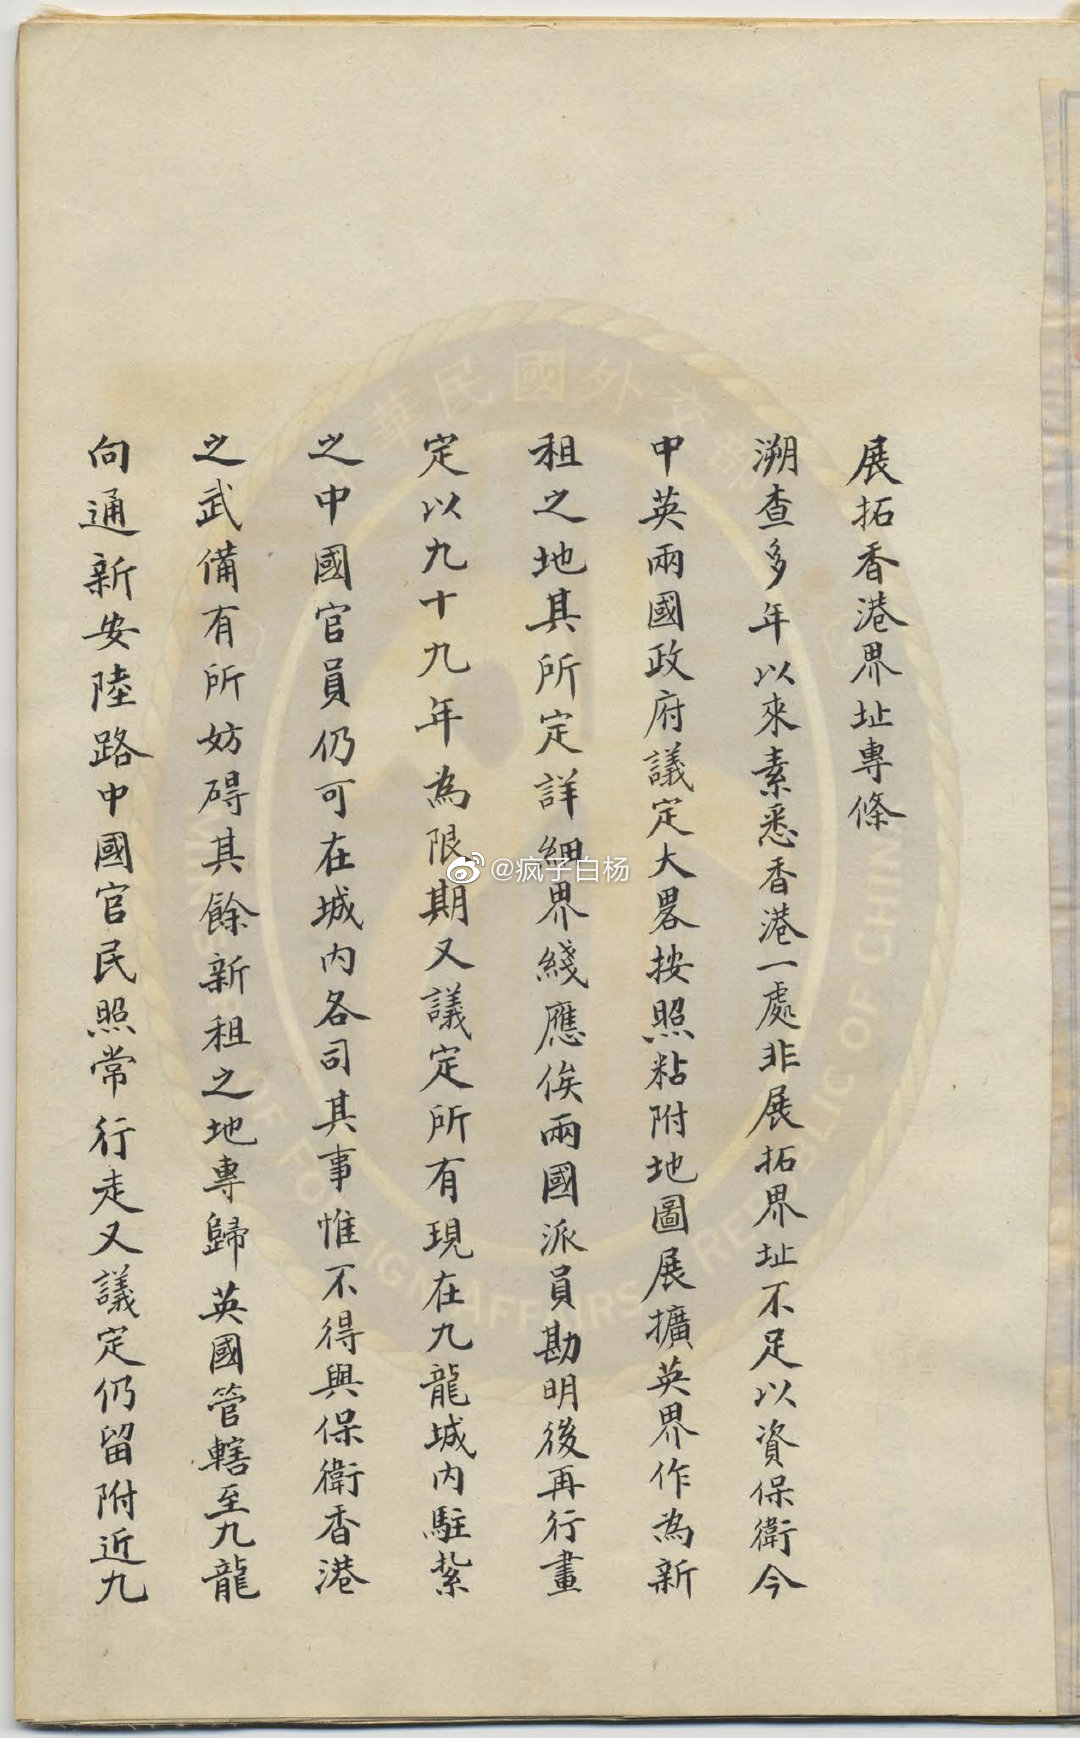 展拓香港界址專條
溯查多年以來素悉香港一處非展拓界址不足以資保衛今
中英兩國政府議定大畧按照粘附地圖展擴英界作為新
租之地其所定詳細界綫應俟兩國派員勘明後再行畫
定以九十九年為限期又議定所有現在九龍城內駐紮
之中國官員仍可在城內各司其事惟不得與保衛香港
之武備有所妨碍其餘新租之地專歸英國管轄至九龍
向通新安陸路中國官民照常行走又議定仍留附近九
@疯子白杨
華民國外交
OF FOREIGN AFFAIRS REPUBLIC OF CHINA